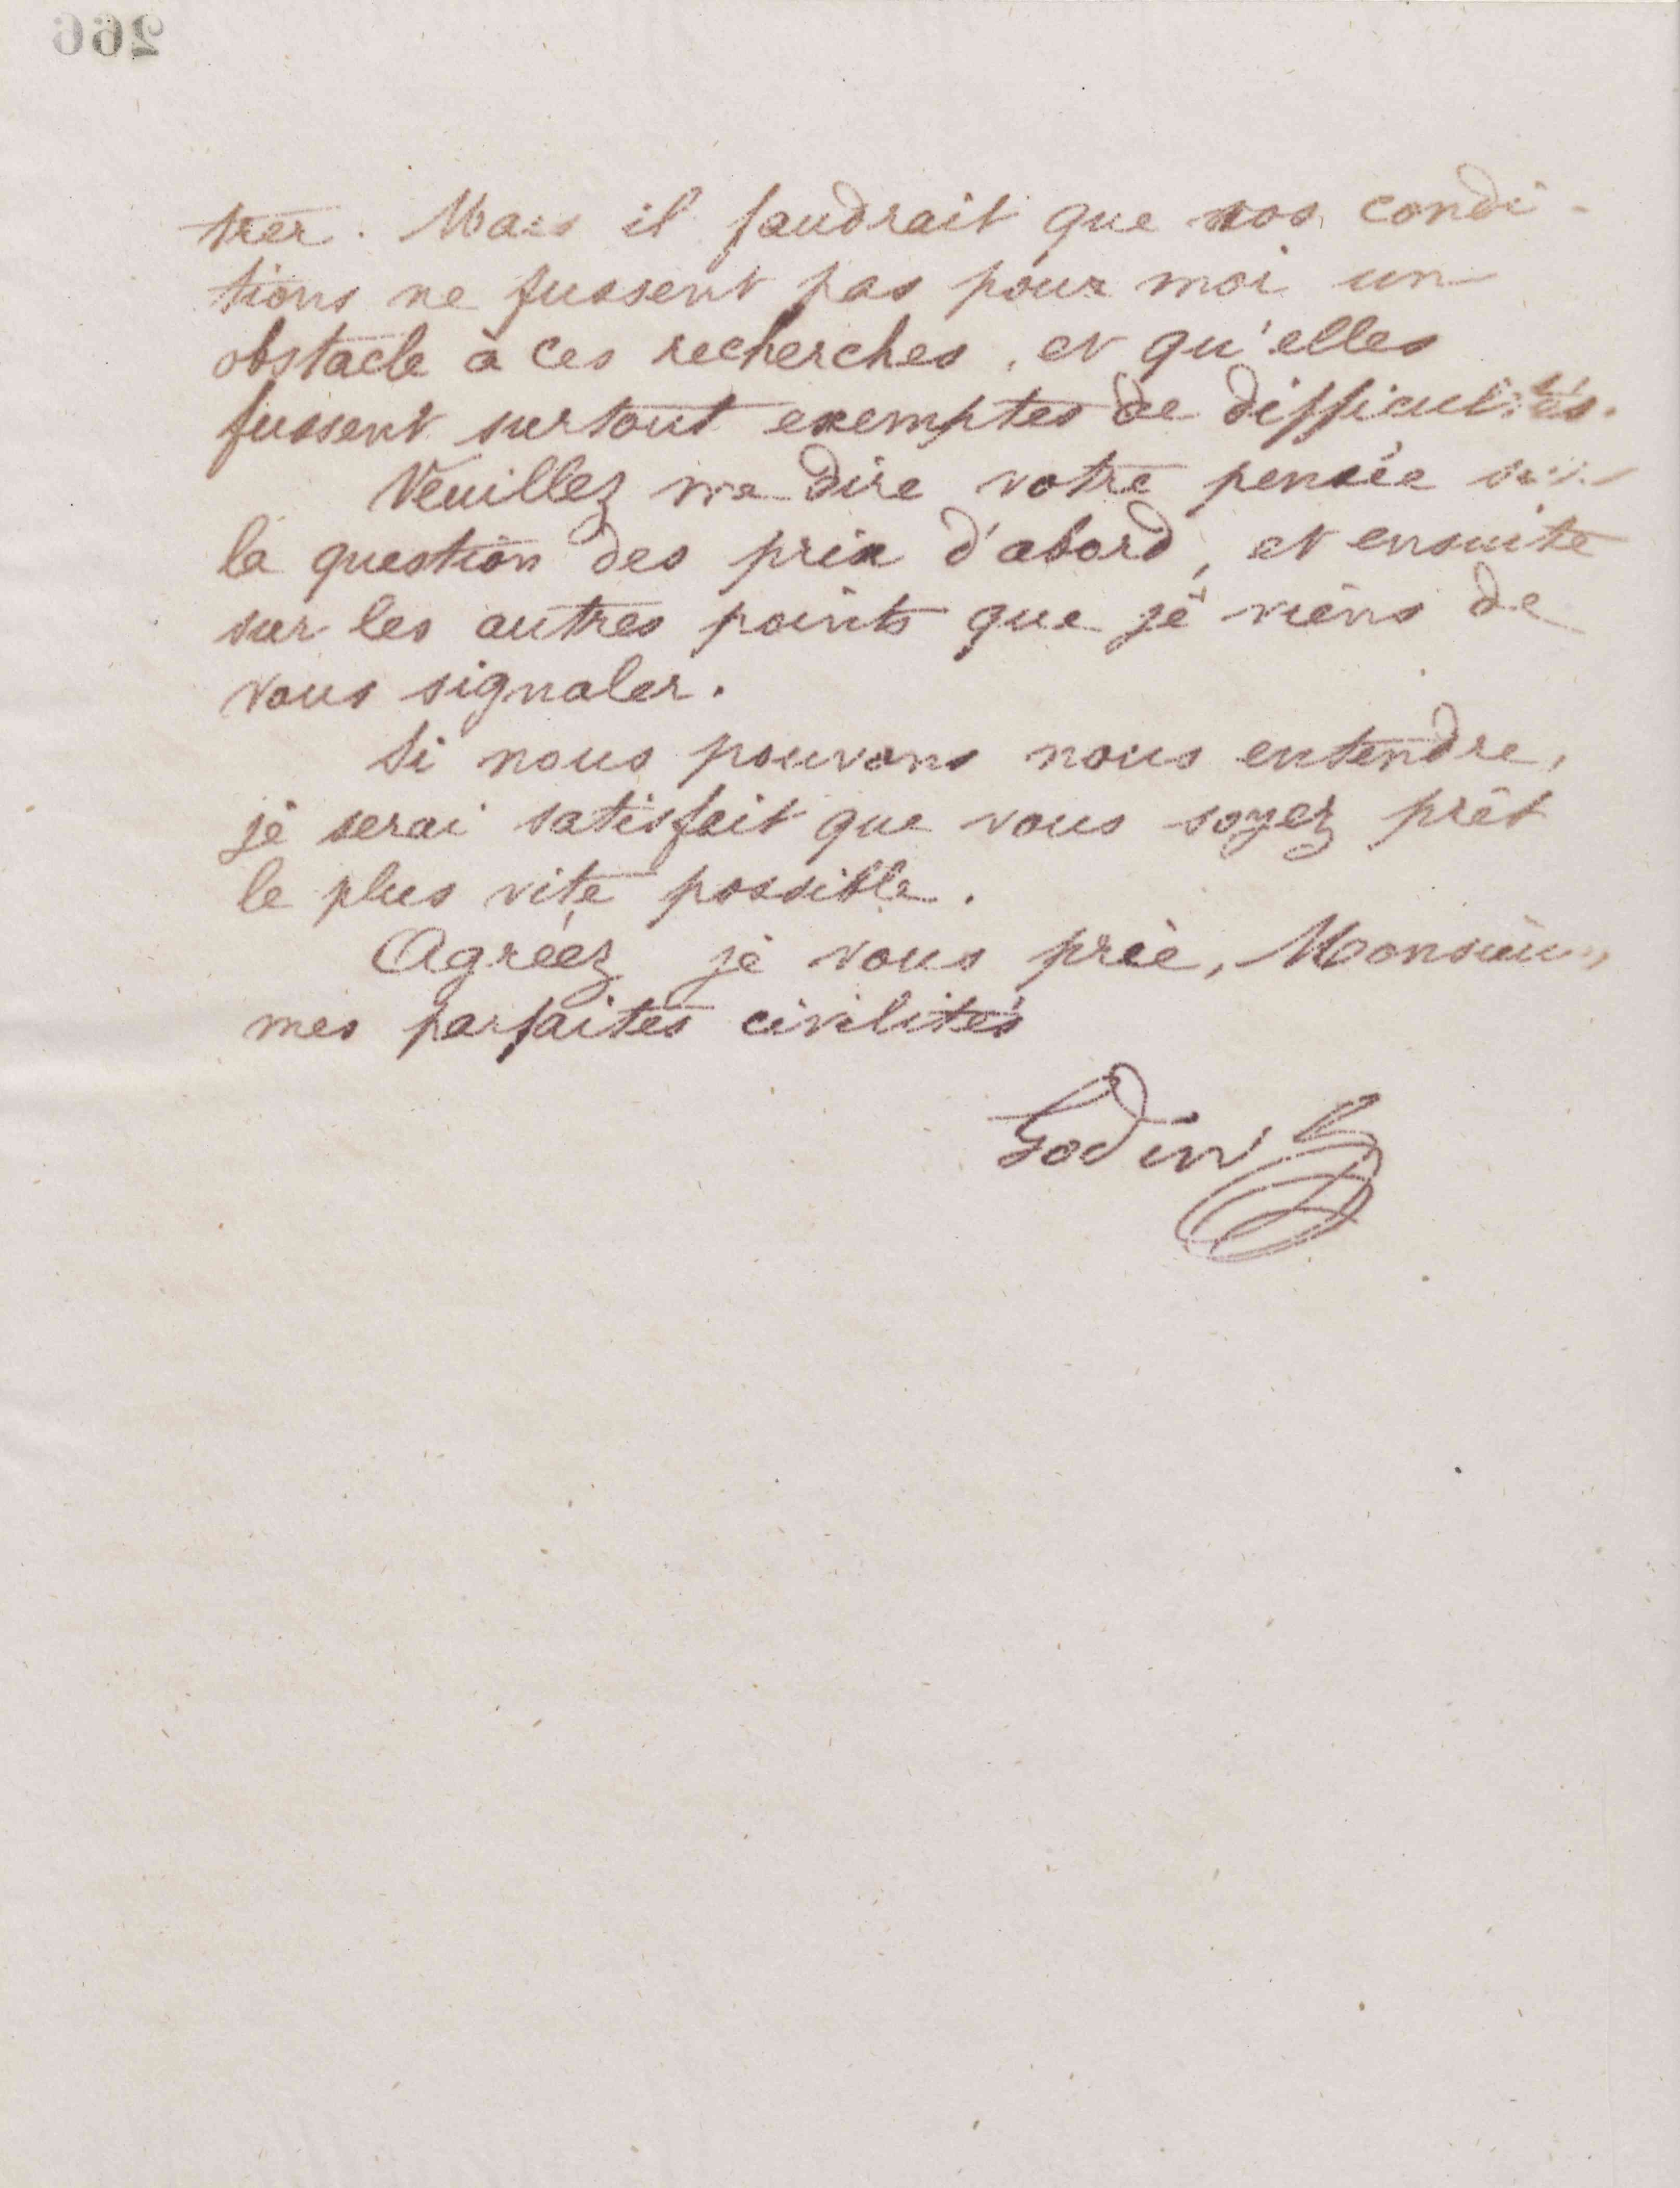 266
trer. Mais il faudrait que nos condi-
tions ne fussent pas pour moi un
obstacle à ces recherches, et qu'elles
fussent surtout exemptes de difficultés.
Veuillez me dire votre pensée sur
la question des prix d'abord, et ensuite
sur les autres points que je viens de
vous signaler.
Si nous pouvons nous entendre,
je serai satisfait que vous soyez prêt
le plus vite possible.
Agréez je vous prie, Monsieur,
mes parfaites civilités
Godin